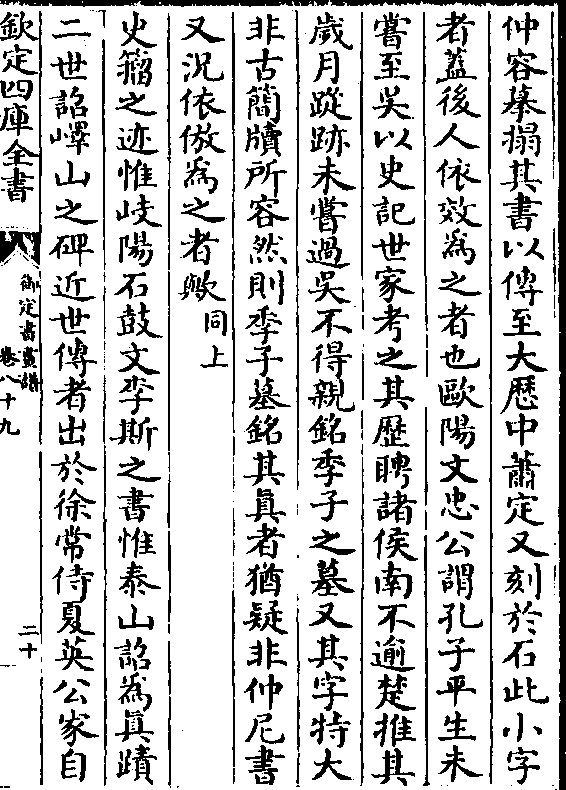 仲容摹搨其書以傳至大歴中蕭定又刻於石此小字
者蓋後人依效為之者也歐陽文忠公謂孔子平生未
嘗至吳以史記世家考之其歴聘諸侯南不逾楚推其
歲月蹤跡未嘗過吳不得親銘季子之墓又其字特大
非古簡牘所容然則季子墓銘其真者猶疑非仲尼書
又況依倣為之者歟同上
史籀之迹惟岐陽石鼓文李斯之書惟泰山詔為真蹟
二世詔嶧山之碑近世傳者出於徐常侍夏英公家自
欽定四庫全書
御定書畫譜
卷八十九
二十